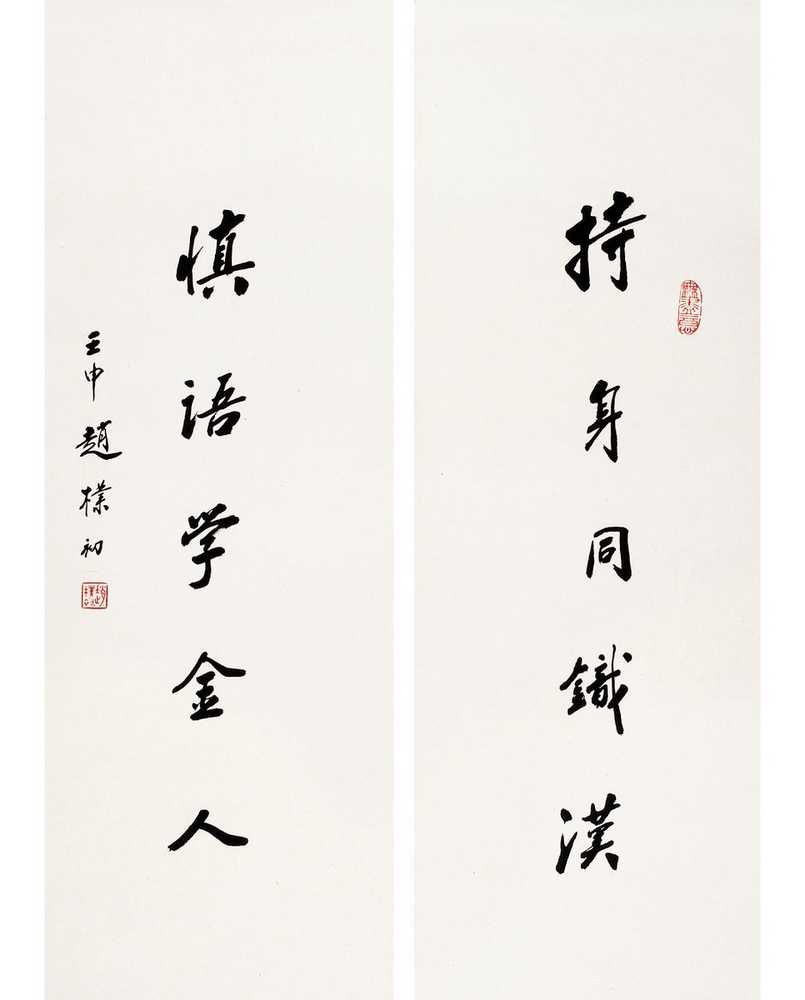 持身同鐵漢
慎语学金人
壬申 趙樸初